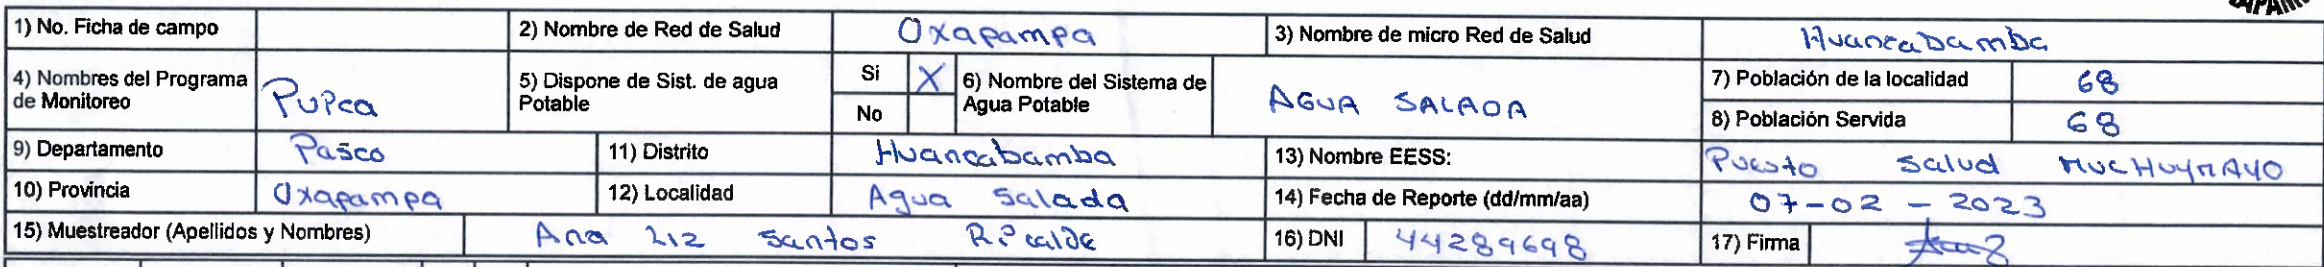 1) No. Ficha de campo 2) Nombre de Red de Salud Oxapampa 3) Nombre de micro Red de Salud Huancabamba
4) Nombres del Programa de Monitoreo Pupca 5) Dispone de Sist. de agua Potable Si X No 6) Nombre del Sistema de Agua Potable AGUA SALADA 7) Población de la localidad 68
8) Población Servida 68
9) Departamento Pasco 11) Distrito Huancabamba 13) Nombre EESS: Puesto salud MUCHUYMAYO
10) Provincia Oxapampa 12) Localidad Agua Salada 14) Fecha de Reporte (dd/mm/aa) 07-02-2023
15) Muestreador (Apellidos y Nombres) Ana Liz Santos Ricalde 16) DNI 44289698 17) Firma